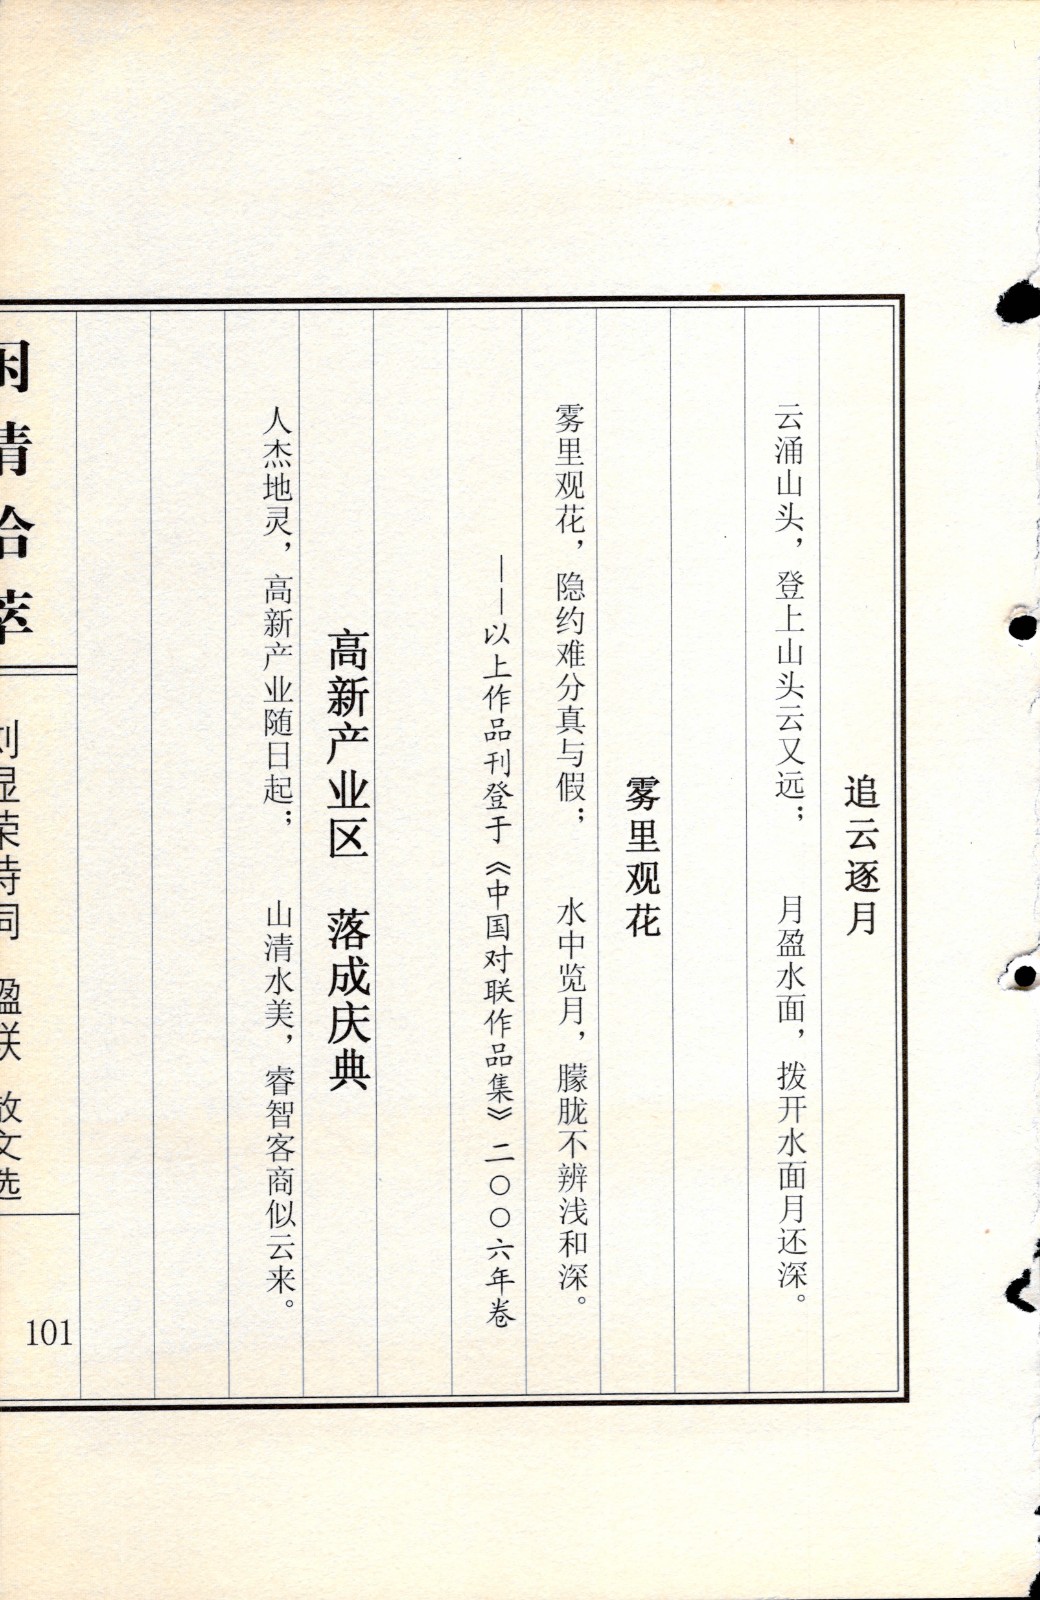 追云逐月
云涌山头，登上山头云又远；　月盈水面，拨开水面月还深。
雾里观花
雾里观花，隐约难分真与假；　水中览月，朦胧不辨浅和深。
——以上作品刊登于《中国对联作品集》二〇〇六年卷
高新产业区　落成庆典
人杰地灵，高新产业随日起；　山清水美，睿智客商似云来。
闲情拾萃
刘显荣诗词　盈联　散文选
101